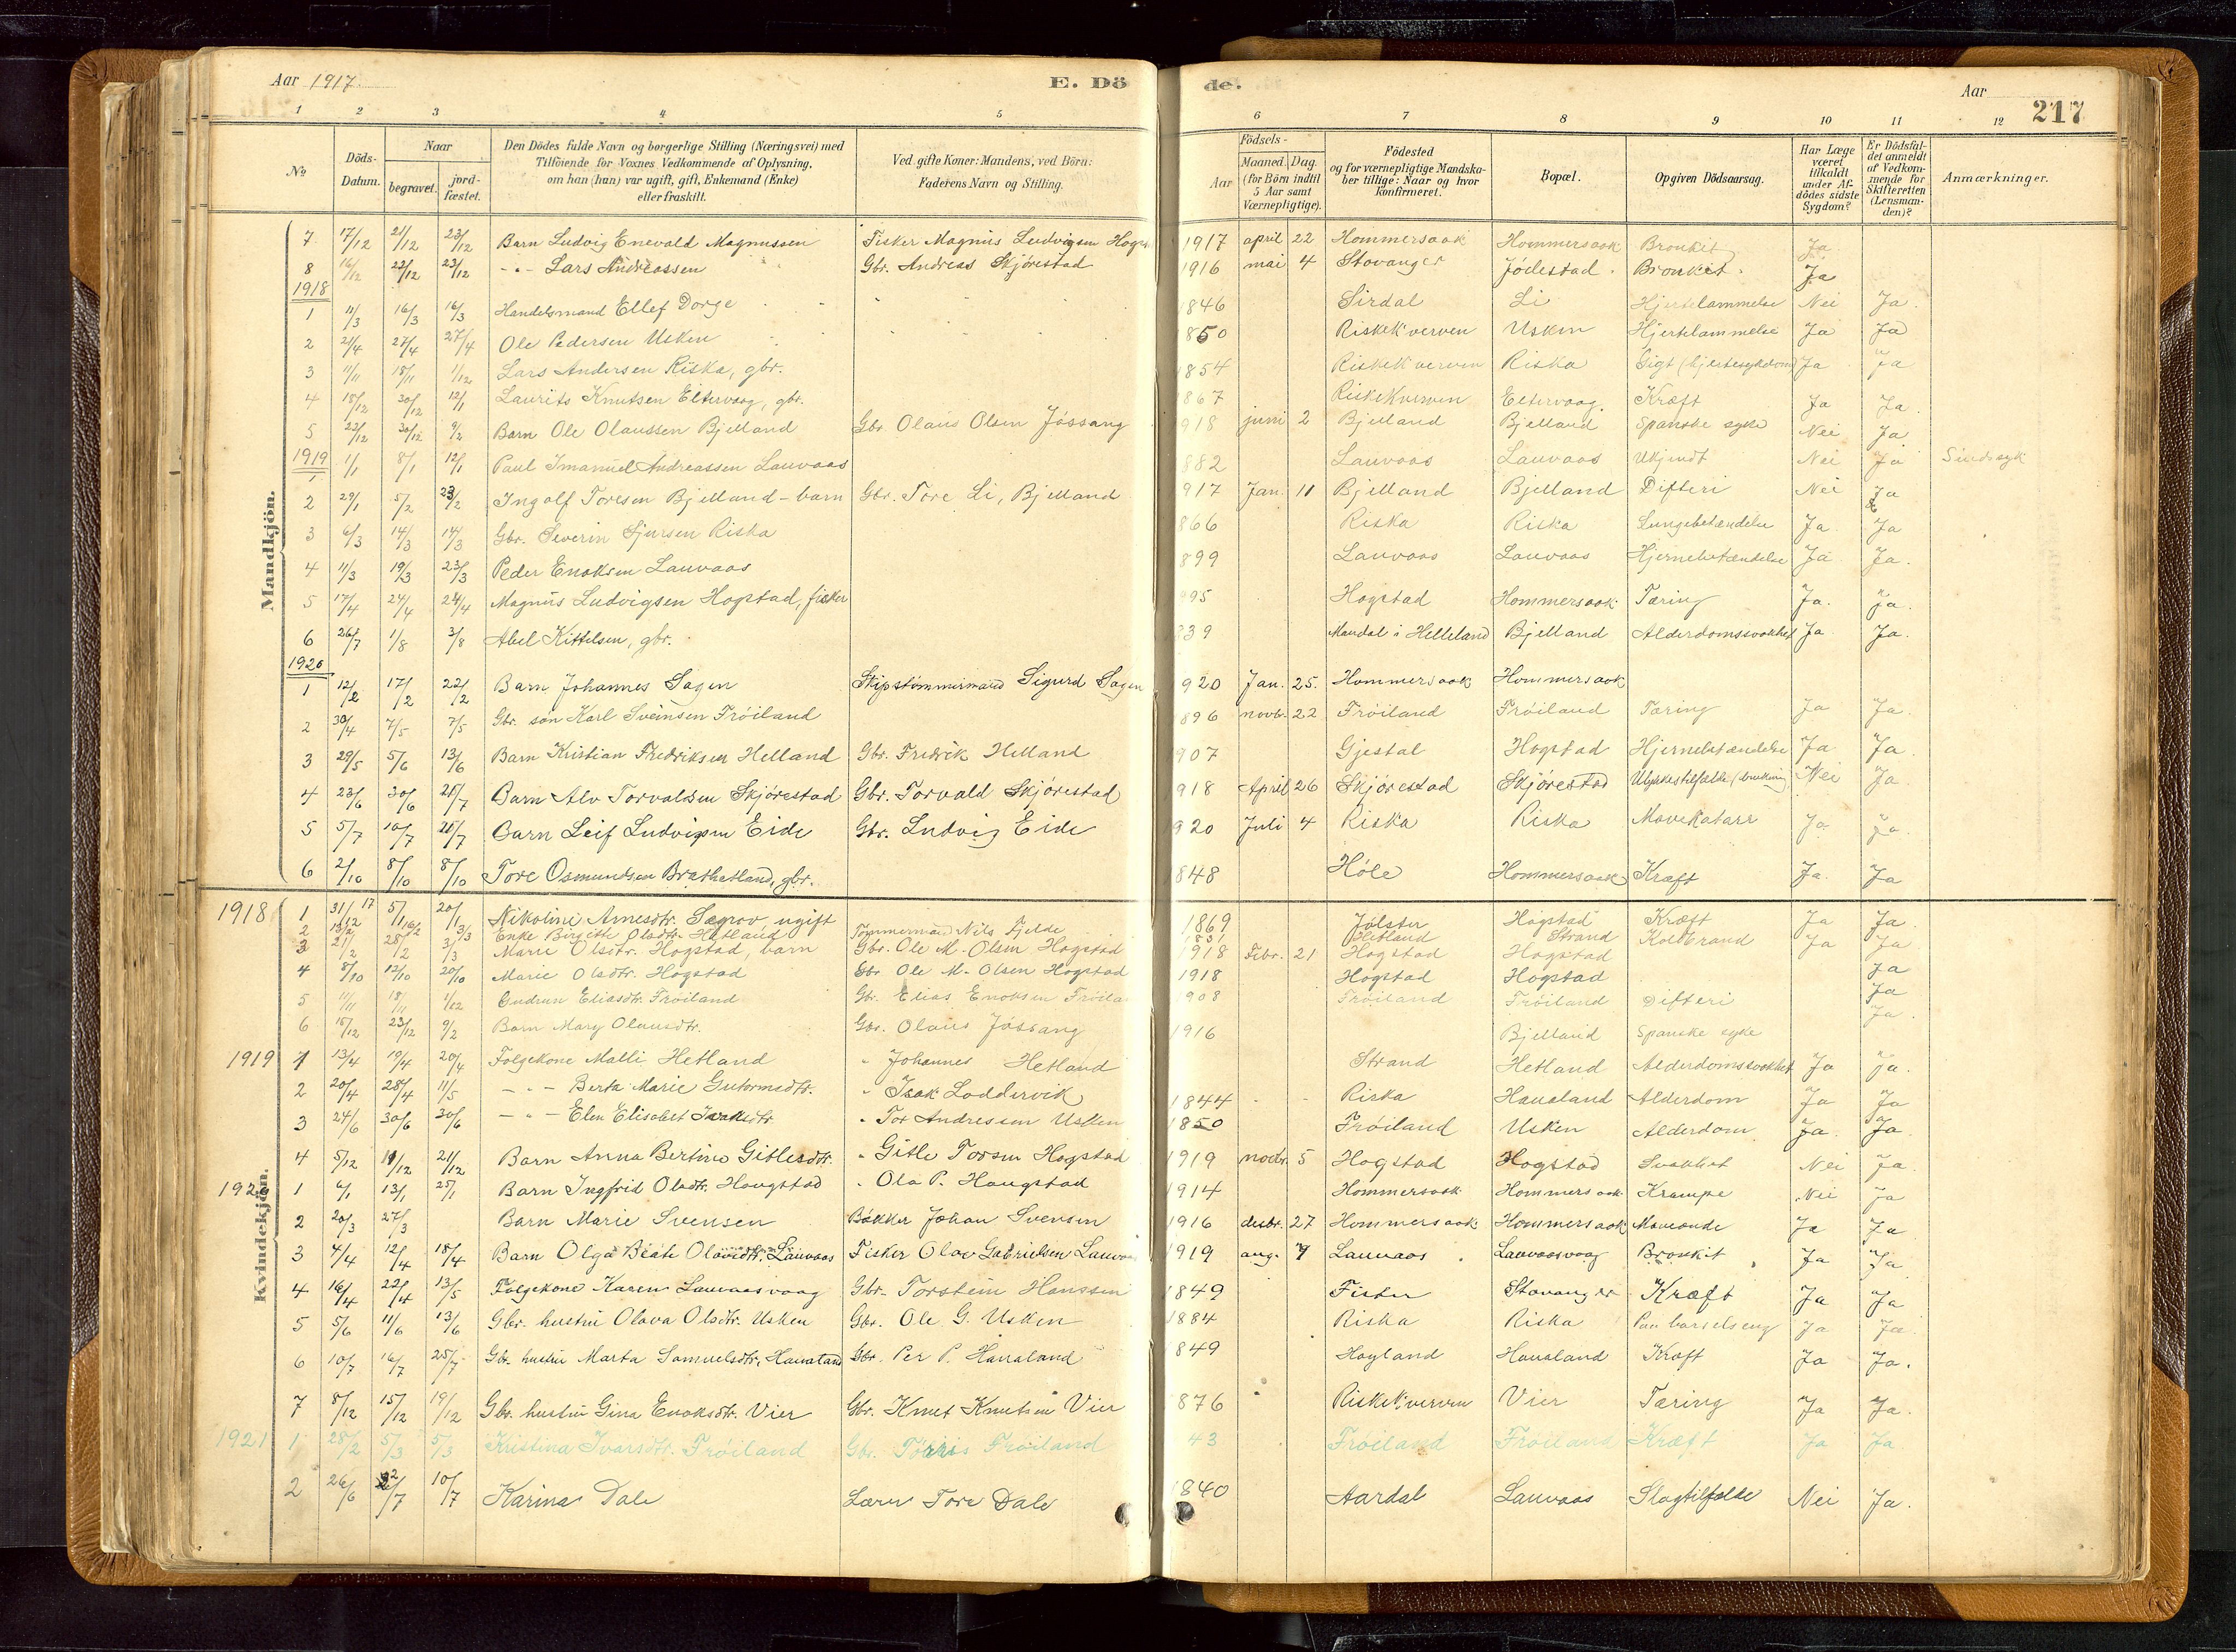 Aar 1917. E. Döde. Aar 217
1 2 3 4 5 6 7 8 9 10 11 12
№ Döds-Datum. Naar begravet. jord-fæstet. Den Dödes fulde Navn og borgerlige Stilling (Næringsvei) med Tilföiende for Voxnes Vedkommende af Oplysning, om han (hun) var ugift, gift, Enkemand (Enke) eller fraskilt. Ved gifte Koner: Mandens, ved Börn: Faderens Navn og Stilling. Födsels- Aar Maaned. Dag. (for Börn indtil 5 Aar samt Værnepligtige). Födested og for værnepligtige Mandskaber tillige: Naar og hvor konfirmeret. Bopæl. Opgiven Dödsaarsag. Har Læge været tilkaldt under Afdödes sidste Sygdom? Er Dödsfaldet anmeldt af Vedkommende for Skifteretten (Lensmanden)? Anmærkninger.
Mandkjön.
7 17/12 21/12 23/12 Barn Ludvig Enevald Magnussen Fisker Magnus Ludvigsen 1917 april 22 Hommersaak Hommersaak Bronkit Ja
8 16/12 22/12 23/12 -"- Lars Andreassen Gbr. Andreas Skjörestad 1916 mai 4 Stavanger Jödestad Bronkit. Ja
1918
1 11/3 16/3 16/3 Handelsmand Ellef Dorge 1846 Sirdal Li Hjertelammelse Nei Ja.
2 21/4 27/4 27/4 Ole Pedersen Usken 1850 Riskekverven Usken Hjertelammelse Ja Ja
3 11/11 18/11 1/12 Lars Andersen Riska, gbr. 1854 Riskekverven Riska Gigt (hjertesykdom) Ja Ja
4 18/12 30/12 12/1 Laurits Knutsen Eltervaag, gbr. 1867 Riskekverven Eltervaag. Kræft Ja Ja.
5 22/12 30/12 9/2 Barn Ole Olaussen Bjelland Gbr. Olaus Olsen Jössang 918 juni 2 Bjelland Bjelland Spanske syke Nei Ja
1919 1/1 8/1 12/1 Paul Imanuel Andreassen Lauvaas 882 Lauvaas Lauvaas Ukjendt Nei Ja Sindssyk
2 29/1 5/2 23/2 Ingolf Toresen Bjelland - barn Gbr. Tore Li, Bjelland 917 Jan. 11 Bjelland Bjelland Difteri Nei Ja
3 6/3 14/3 14/3 Gbr. Severin Sjursen Riska 866 Riska Riska Lungebetændelse Ja. Ja
4 11/3 19/3 23/3 Peder Enoksen Lauvaas 899 Lauvaas Lauvaas Hjernebetændelse Ja Ja.
5 17/4 24/4 24/4 Magnus Ludvigsen Hogstad, fisker 95 Hogstad Hommersaak Tæring Ja. Ja.
6 26/7 1/8 3/8 Abel Kittelsen, gbr. 839 Mandal i Helleland Bjelland Alderdomssvakhet Ja Ja.
1920
1 12/2 17/2 22/2 Barn Johannes Sagen Skipstömmermand Sigurd Sagen 920 Jan. 25. Hommersaak Hommersaak
2 30/4 7/5 7/5 Gbr. sön Karl Sveinsen Fröiland 896 novb. 22 Fröiland Fröiland Tæring Ja Ja.
3 29/5 5/6 13/6 Barn Kristian Fredriksen Helland Gbr. Fredrik Helland 907 Gjestal Hogstad Hjernebetændelse Ja Ja.
4 23/6 30/6 25/7 Barn Alv Torvaldsen Skjörestad Gbr. Torvald Skjörestad 918 April 26 Skjörestad Skjörestad Ulykkestilfælde Nei Ja.
5 5/7 10/7 25/7 Barn Leif Ludvigsen Eide Gbr. Ludvig Eide 920 Juli 4 Riska Riska Mavekatarr Ja Ja.
6 2/10 8/10 8/10 Tore Osmundsen Brathetland, gbr. 848 Höle Hommersaak Kræft Ja. Ja
Kvindekjön.
1918 1 31/12 17 5/1 20/1 Nikoline Arnesdtr. Sægrov, ugift 1869 Jölster Hogstad Kræft Ja Ja.
2 13/2 16/2 3/3 Enke Birgithe Olsdtr. Hetland Tömmermand Nils Fjelde 1831 Hetland Strand Koldbrand Ja Ja
3 21/2 28/2 3/3 Marie Olsdtr. Hogstad, barn Gbr. Ole M. Olsen Hogstad 1918 Febr. 21 Hogstad Hogstad
4 8/10 12/10 20/10 Marie Olsdtr. Hogstad Gbr Ole M. Olsen Hogstad 1918 Hogstad Hogstad Ja
5 11/11 18/11 1/12 Gudrun Eliasdtr. Fröiland Gbr. Elias Enoksen 908 Fröiland Fröiland Difteri Ja
6 15/12 23/12 9/2 Barn Mary Olausdtr. Gbr. Olaus Jössang 1916 Bjelland Spanske syke Ja.
1919 1 13/4 19/4 20/4 Folgekone Malli Hetland " Johannes Hetland Strand Hetland Alderdomssvakhet Ja Ja.
2 20/4 28/4 11/5 -"- Berta Marie Gutormsdtr. " Isak Loddervik 1844 Riska Haualand Alderdom Ja Ja
3 24/6 30/6 30/6 -"- Elen Elisabet Isaksdtr " Tor Andressen Usken 1850 Fröiland Usken Alderdom Ja. Ja.
4 5/12 11/12 21/12 Barn Anna Bertine Gitlesdtr. " Gitle Torsen Hogstad 1919 novbr. 5 Hogstad Hogstad Svakhet Nei Ja.
1920 1 6/1 13/1 25/1 Barn Ingfrid Olsdtr. Haugstad " Ola P. Haugstad 1914 Hommersaak Hommersaak Krampe Nei Ja
2 20/3 27/3 Barn Marie Svensen Bakker Johan Svensen 1916 desbr. 27 Hommersaak Hommersaak Maveonde Ja Ja.
3 4/4 12/4 18/4 Barn Olga Beate Olavsdtr. Lauvaas Fisker Olav Gabrielsen 1919 aug. 7 Lauvaas Lauvaasvaag Bronkit Ja Ja.
4 16/4 22/4 13/5 Folgekone Karen Lauvaasvaag Gbr. Torstein Hanssen 1849 Fister Stavanger Kræft Ja Ja
5 5/6 11/6 13/6 Gbr. hustru Olava Olsdtr. Usken Gbr. Ole G. Usken 1884 Riska Riska Paa barselseng Ja Ja.
6 10/7 16/7 25/7 Gbr. hustru Marta Samuelsdtr. Haualand Gbr. Per P. Haualand 1849 Høyland Haualand Kræft Ja Ja.
7 8/12 15/12 19/12 Gbr. hustru Gina Enoksdtr. Vier Gbr. Knut Knutsen Vier 876 Riskekverven Vier Tæring Ja Ja.
1921 1 28/2 5/3 5/3 Kristina Ivarsdtr. Fröiland Gbr. Torris Fröiland 43 Fröiland Fröiland Kræft Ja Ja
2 26/6 2/7 10/7 Karina Dale Lærer Tore Dale 1840 Aardal Lauvaas Slagtilfælde Nei Ja.